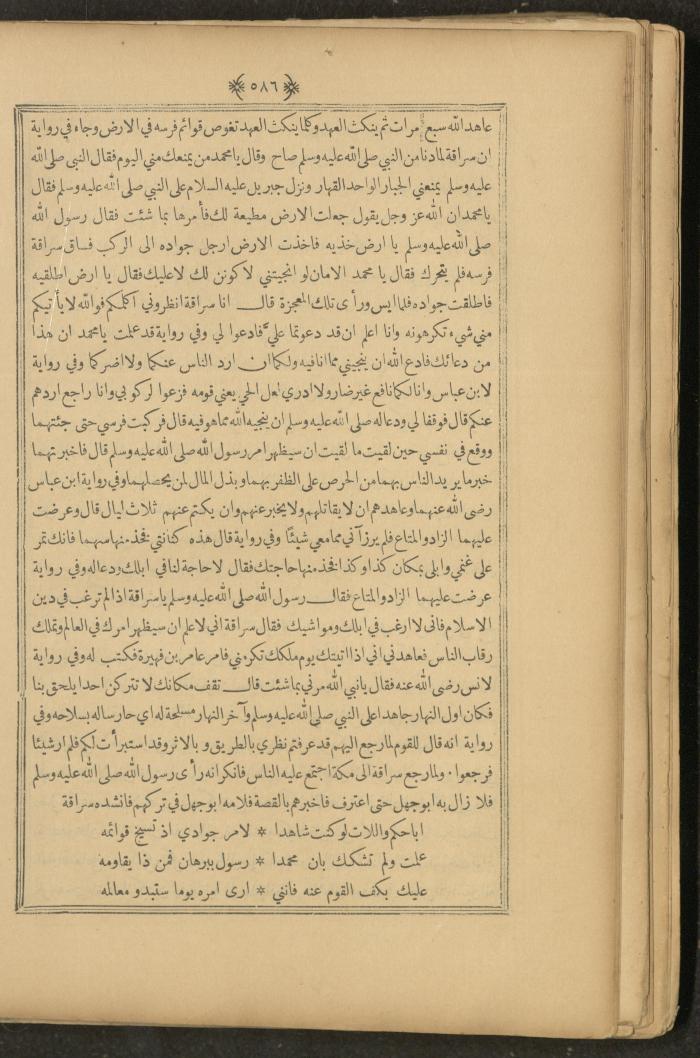 ٥٨٦
عاهد الله سبع مرات ثم ينكث العهد وكلما ينكث العهد تغوص قوائم فرسه في الارض وجاء في رواية
ان سراقة لما دنا من النبي صلى الله عليه وسلم صاح وقال يا محمد من يمنعك مني اليوم فقال النبي صلى الله
عليه وسلم يمنعني الجبار الواحد القهار ونزل جبريل عليه السلام على النبي صلى الله عليه وسلم فقال
يا محمد ان الله عز وجل يقول جعلت الارض مطيعة لك فأمرها بما شئت فقال رسول الله
صلى الله عليه وسلم يا ارض خذيه فاخذت الارض ارجل جواده الى الركب فساق سراقة
فرسه فلم يتحرك فقال يا محمد الامان لو انجيتني لاكونن لك لا عليك فقال يا ارض اطلقيه
فاطلقت جواده فلما ايس ورأى تلك المعجزة قال انا سراقة انظروني اكلمكم فوالله لا يأتيكم
مني شيء تكرهونه وانا اعلم ان قد دعوتما عليّ فادعوا لي وفي رواية قد علمت يا محمد ان هذا
من دعائك فادع الله ان ينجيني مما انا فيه ولكما ان ارد الناس عنكما ولا اضركما وفي رواية
لابن عباس وانا لكما نافع غير ضار ولا ادري لعل الحي يعني قومه فزعوا لركوبي وانا راجع اردهم
عنكم قال فوقفا لي ودعا له صلى الله عليه وسلم ان ينجيه الله مما هو فيه قال فركبت فرسي حتى جئتهما
ووقع في نفسي حين لقيت ما لقيت ان سيظهر امر رسول الله صلى الله عليه وسلم قال فاخبرتهما
خبر ما يريد الناس بهما من الحرص على الظفر بهما وبذل المال لمن يحصلهما وفي رواية ابن عباس
رضى الله عنهما وعاهدهم ان لا يقاتلهم ولا يخبر عنهم وان يكتم عنهم ثلاث ليال قال وعرضت
عليهما الزاد والمتاع فلم يرزآني مما معي شيئًا وفي رواية قال هذه كنانتي فخذ منها سهما فانك تمر
على غنمي وابلي بمكان كذا وكذا فخذ منها حاجتك فقال لا حاجة لنا في ابلك ودعا له وفي رواية
عرضت عليهما الزاد والمتاع فقال رسول الله صلى الله عليه وسلم يا سراقة اذا لم ترغب في دين
الاسلام فاني لا ارغب في ابلك ومواشيك فقال سراقة اني لاعلم ان سيظهر امرك في العالم وتملك
رقاب الناس فعاهدني اني اذا اتيتك يوم ملكك تكرمني فامر عامر بن فهيرة فكتب له وفي رواية
لانس رضى الله عنه فقال يا نبي الله مرني بما شئت قال تقف مكانك لا تتركن احدا يلحق بنا
فكان اول النهار جاهدا على النبي صلى الله عليه وسلم وآخر النهار مسلحة له اي حارسا له بسلاحه وفي
رواية انه قال للقوم لما رجع اليهم قد عرفتم نظري بالطريق وبالاثر وقد استبرأت لكم فلم ار شيئا
فرجعوا · ولما رجع سراقة الى مكة اجتمع عليه الناس فانكر انه رأى رسول الله صلى الله عليه وسلم
فلا زال به ابو جهل حتى اعترف فاخبرهم بالقصة فلامه ابو جهل في تركهم فانشده سراقة
اباحكم واللات لو كنت شاهدا * لامر جوادي اذ تسيخ قوائمه
علمت ولم تشكك بان محمدا * رسول ببرهان فمن ذا يقاومه
عليك بكف القوم عنه فانني * ارى امره يوما ستبدو معالمه